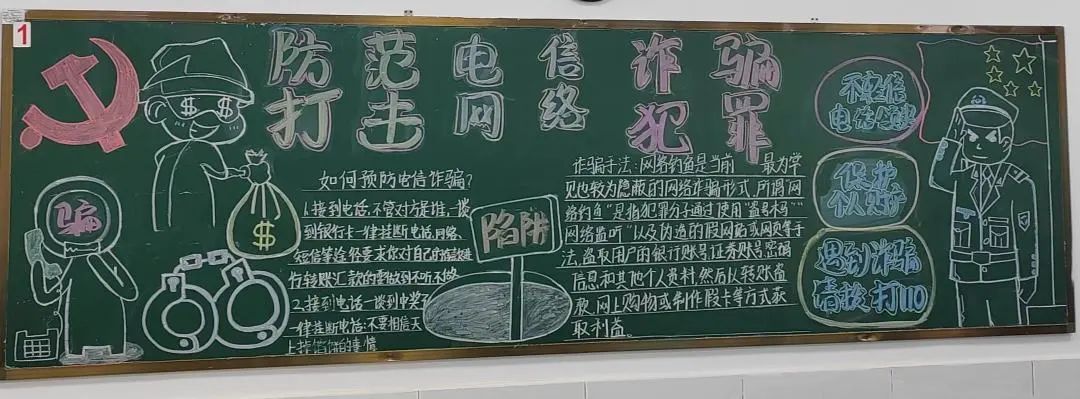 1
防范电信诈骗
打击网络犯罪
骗
$ $
$
如何预防电信诈骗?
1.接到电话,不管对方是谁,一谈
到银行卡一律挂断电话,网络、
短信等途径要求你对自己的
行转账汇款的要做到不听不
2.接到电话一谈到中奖了
一律挂断电话:不要相信天
上掉馅饼的事情
陷阱
诈骗手法:网络钓鱼是当前 最为常
见也较为隐蔽的网络诈骗形式,所谓"网
络钓鱼"是指犯罪分子通过使用"盗号木马"
"网络监听"以及伪造的假网站或网页等手
法,盗取用户的银行账号证券账号、密码
信息和其他个人资料,然后以转账盗
款、网上购物或制作假卡等方式获
取利益。
不轻信
电话
保护
个人
遇到诈骗
请拨打110